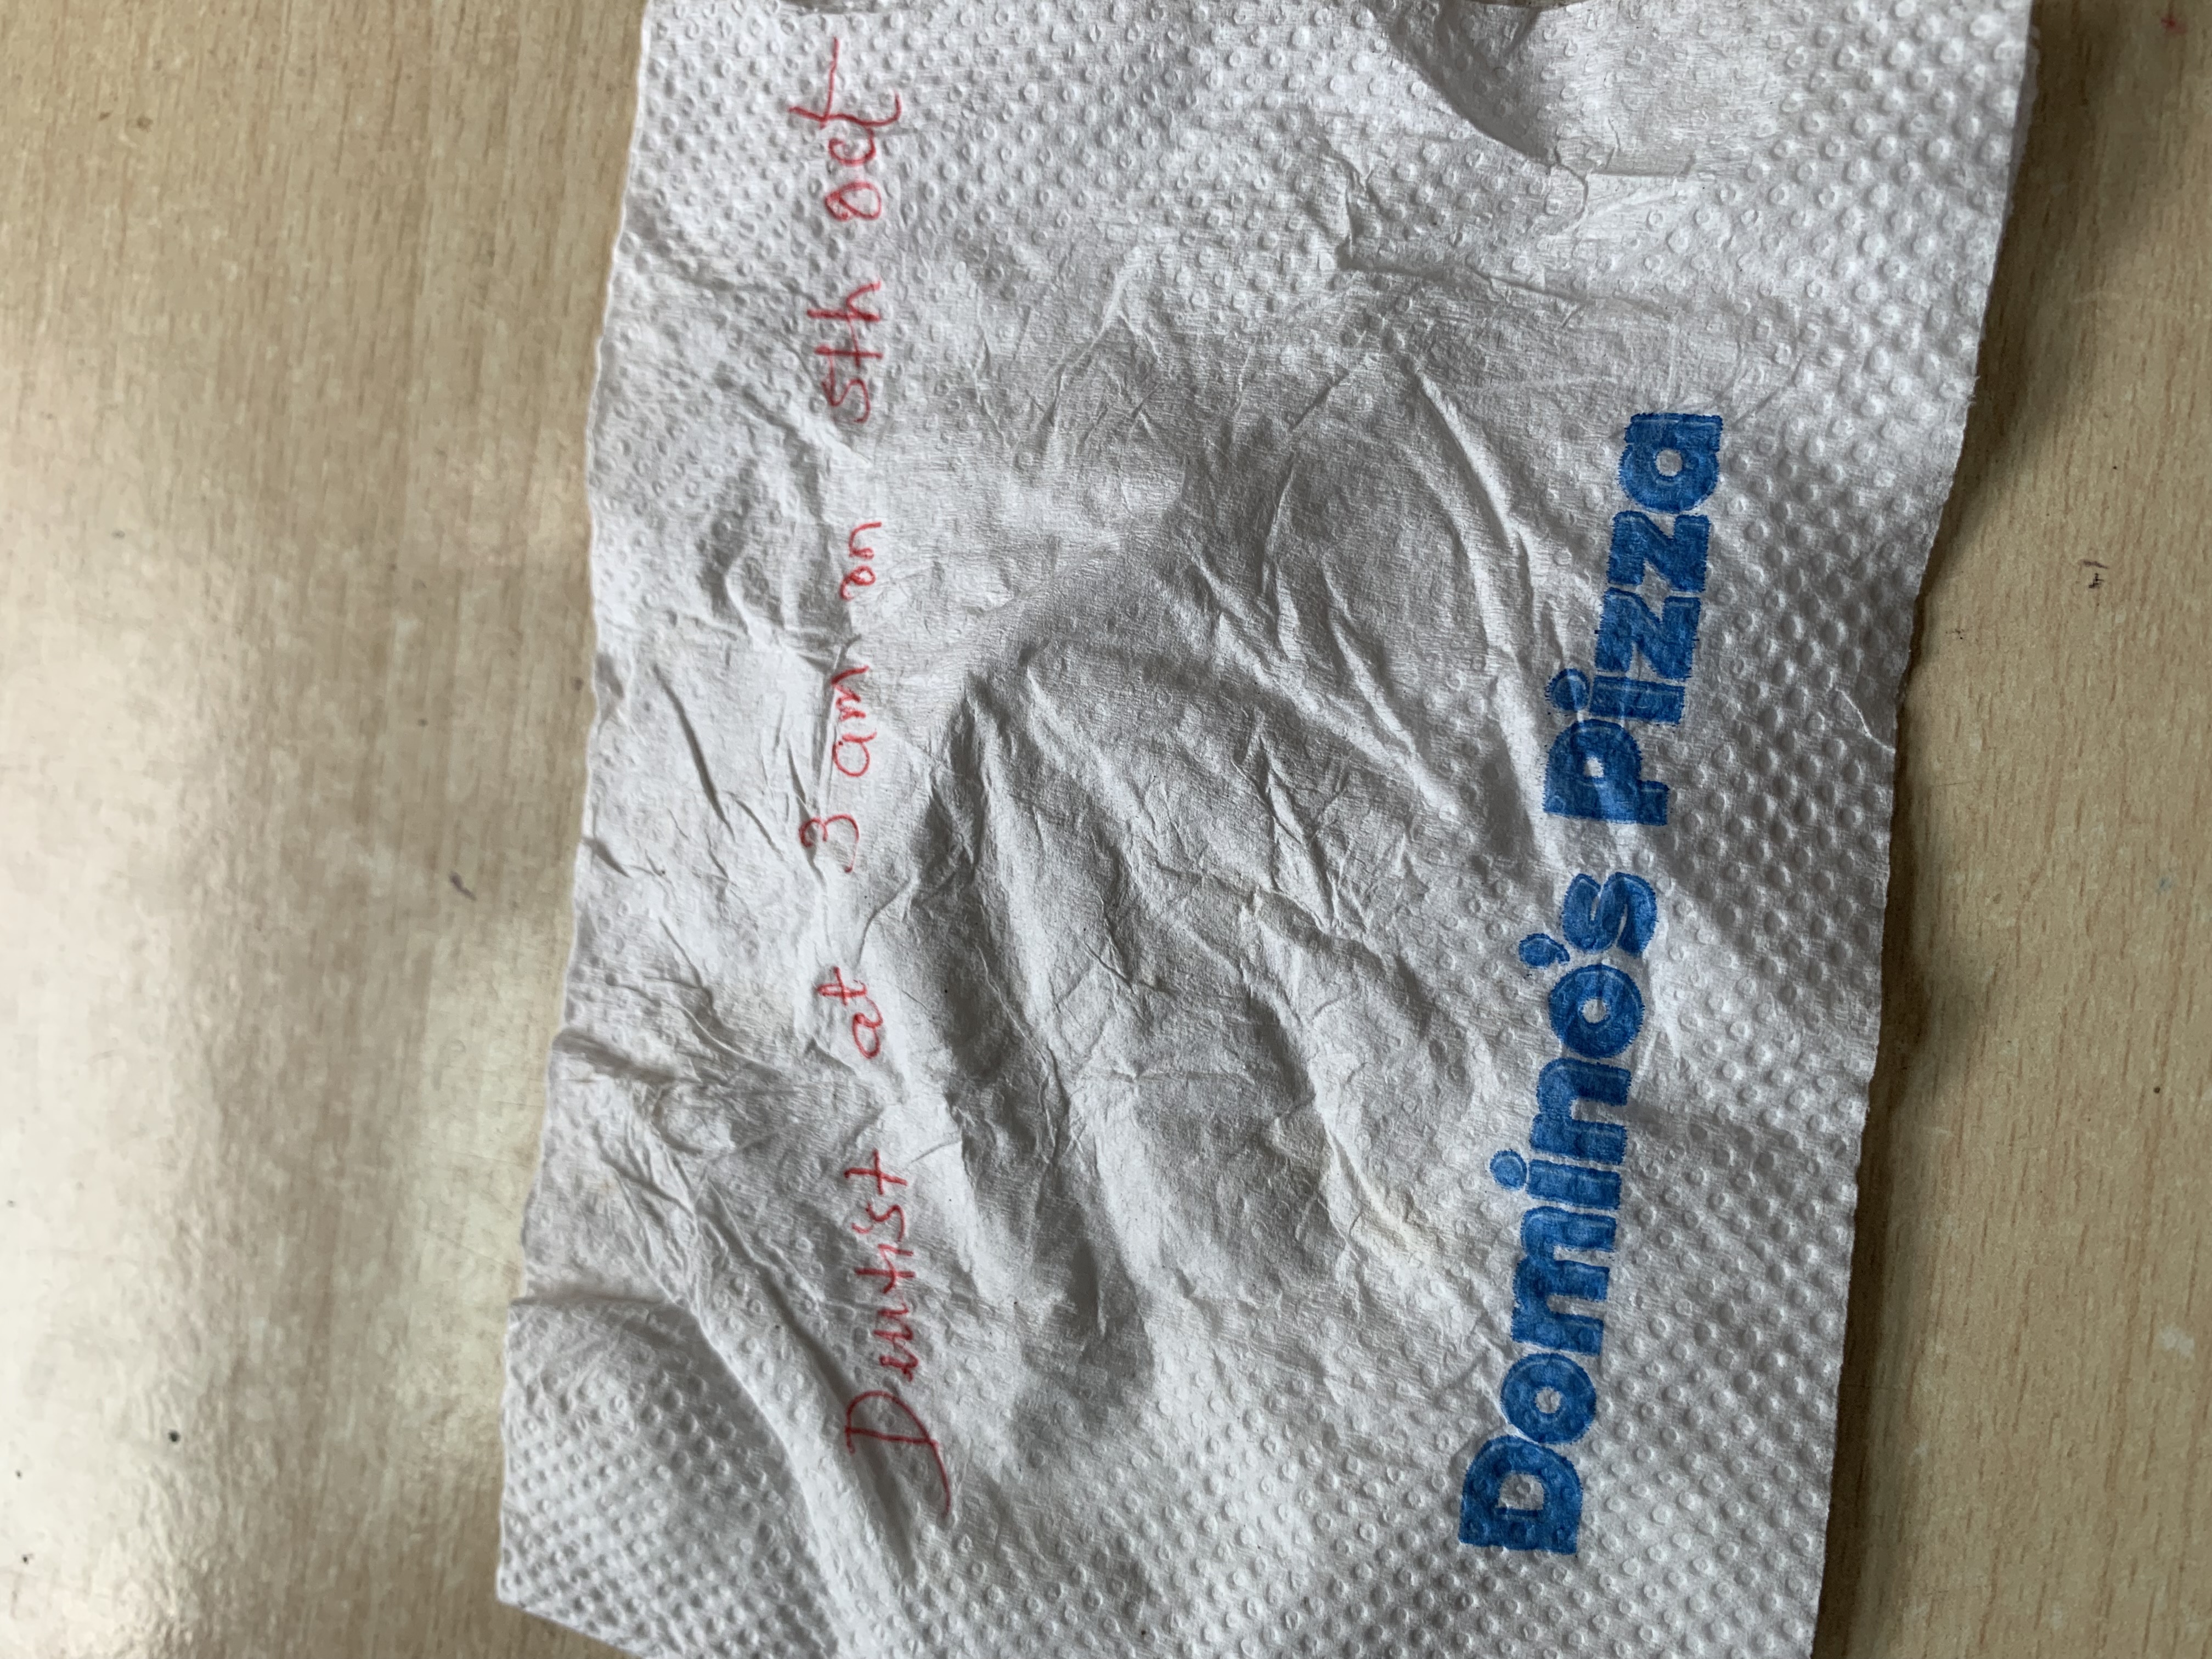 Dentist at 3 am on 5th oct
Domino's Pizza